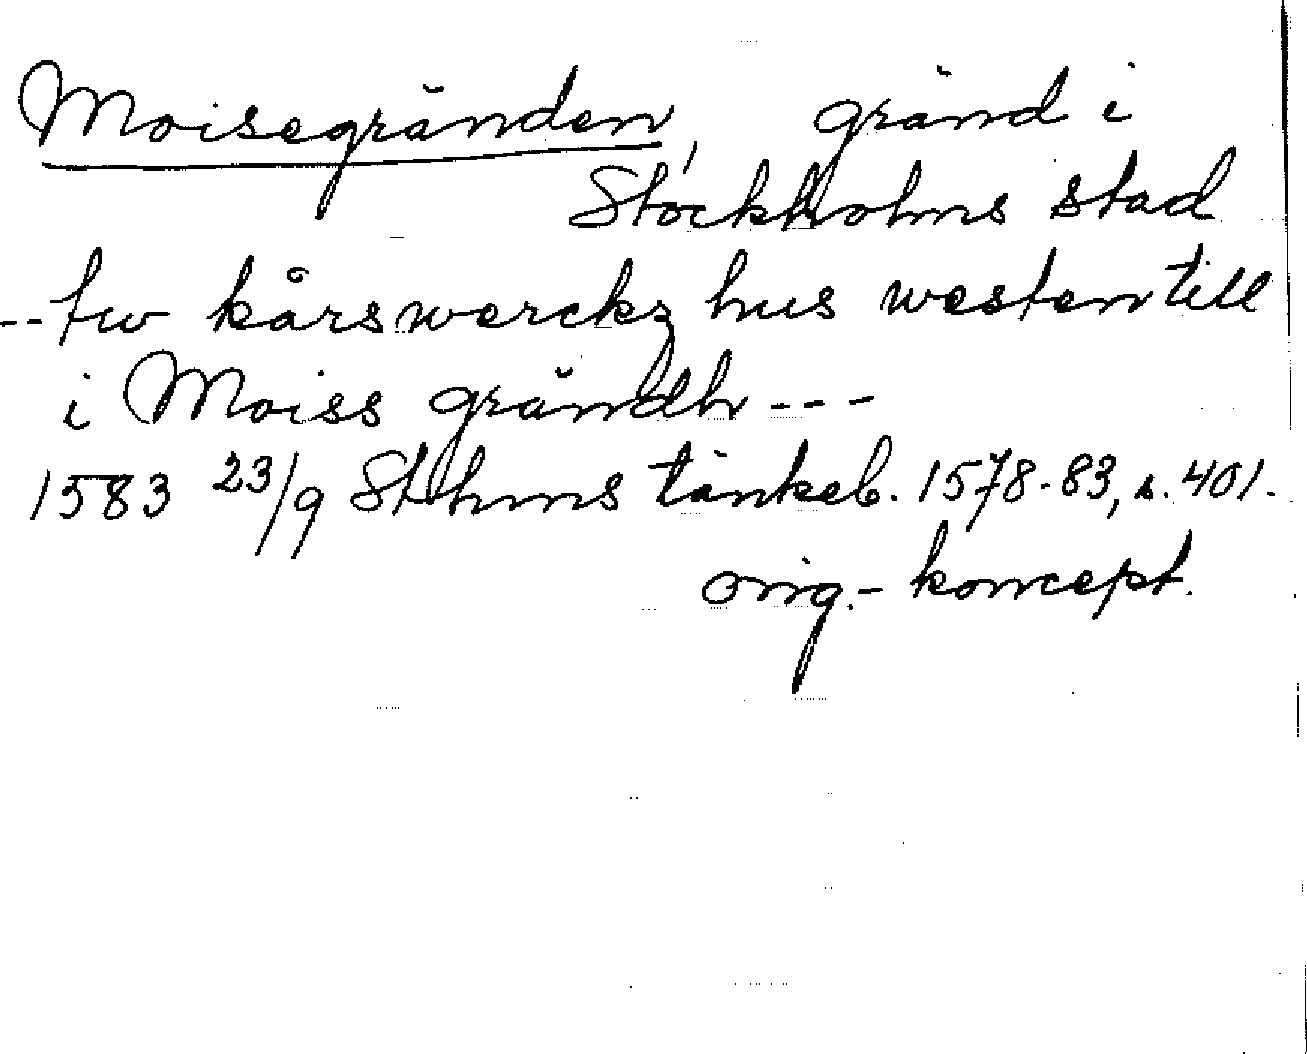 Moisegränden, gränd i
Stockholms stad
-- tw kårswerckz hus westen till
i Moiss grändh ---
1583 23/9 Sthms tänkeb. 1578-83, s. 401.
orig.-koncept.